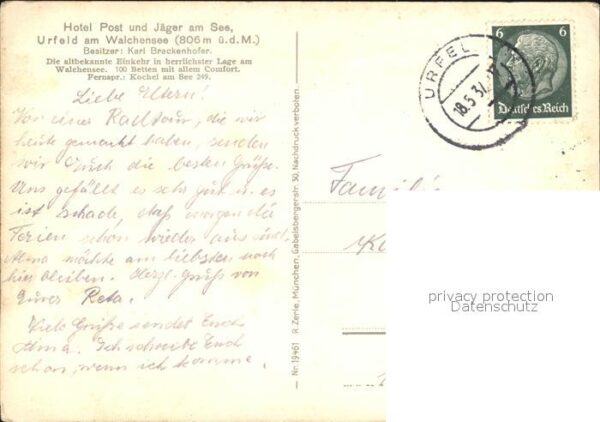 Hotel Post und Jäger am See,
Urfeld am Walchensee (806 m ü.d.M.)
Besitzer: Karl Brackenhofer.
Die altbekannte Einkehr in herrlichster Lage am
Walchensee. 100 Betten mit allem Comfort.
Fernspr.: Kochel am See 249.
Liebe Eltern!
Von einer Radtour, die wir
heute gemacht haben, senden
wir Euch die besten Grüße.
Uns gefällt es sehr gut u. es
ist schade, daß morgen die
Ferien schon wieder aus sind.
Alma möchte am liebsten noch
hier bleiben. Herzl. Gruß von
Eurer Reta.
Viele Grüße sendet Euch
Alma. Ich schreibe Euch
schon, wenn ich komme.
Nr. 19461 R. Zerle, München, Gabelsbergerstr. 30, Nachdruck verboten.
URFEL
18.5.37
6 6
Deutsches Reich
Familie
privacy protection
Datenschutz